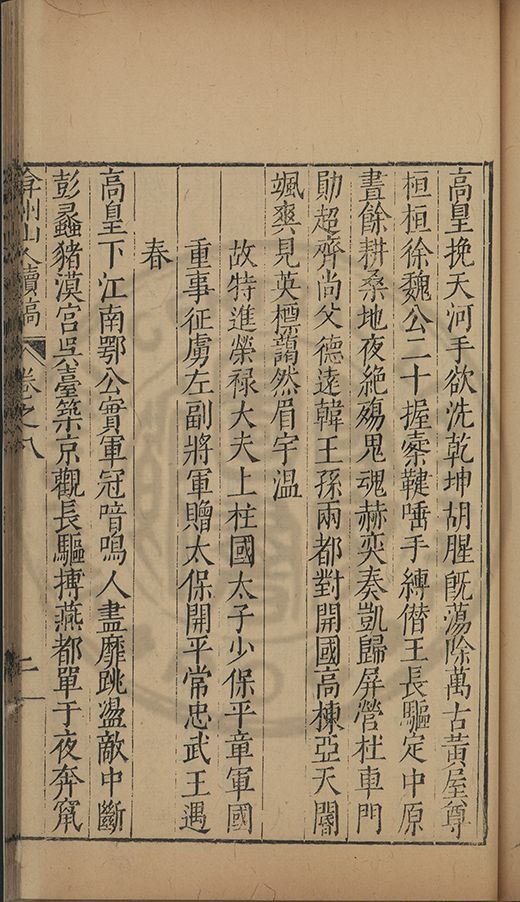 高皇挽天河手欲洗乾坤胡腥旣蕩除萬古黃屋尊
桓桓徐魏公二十握櫜鞬唾手縛僭王長驅定中原
晝餘耕桑地夜絶殤鬼魂赫奕奏凱歸屏營杜車門
勛超齊尚父德遠韓王孫兩都對開國高棟亞天閽
颯爽見英標藹然眉宇温
故特進榮禄大夫上柱國太子少保平章軍國
重事征虜左副將軍贈太保開平常忠武王遇
春
高皇下江南鄂公實軍冠喑鳴人盡靡跳盪敵中斷
彭蠡豬漠宮吳臺築京觀長驅搏燕都單于夜奔竄
弇州山人續稿 卷之八 二